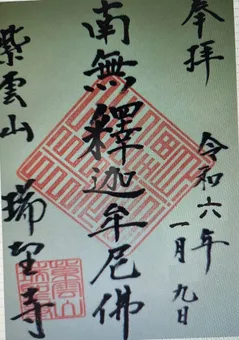 奉拝
令和六年
一月九日
南無釋迦牟尼佛
紫雲山
瑞聖寺